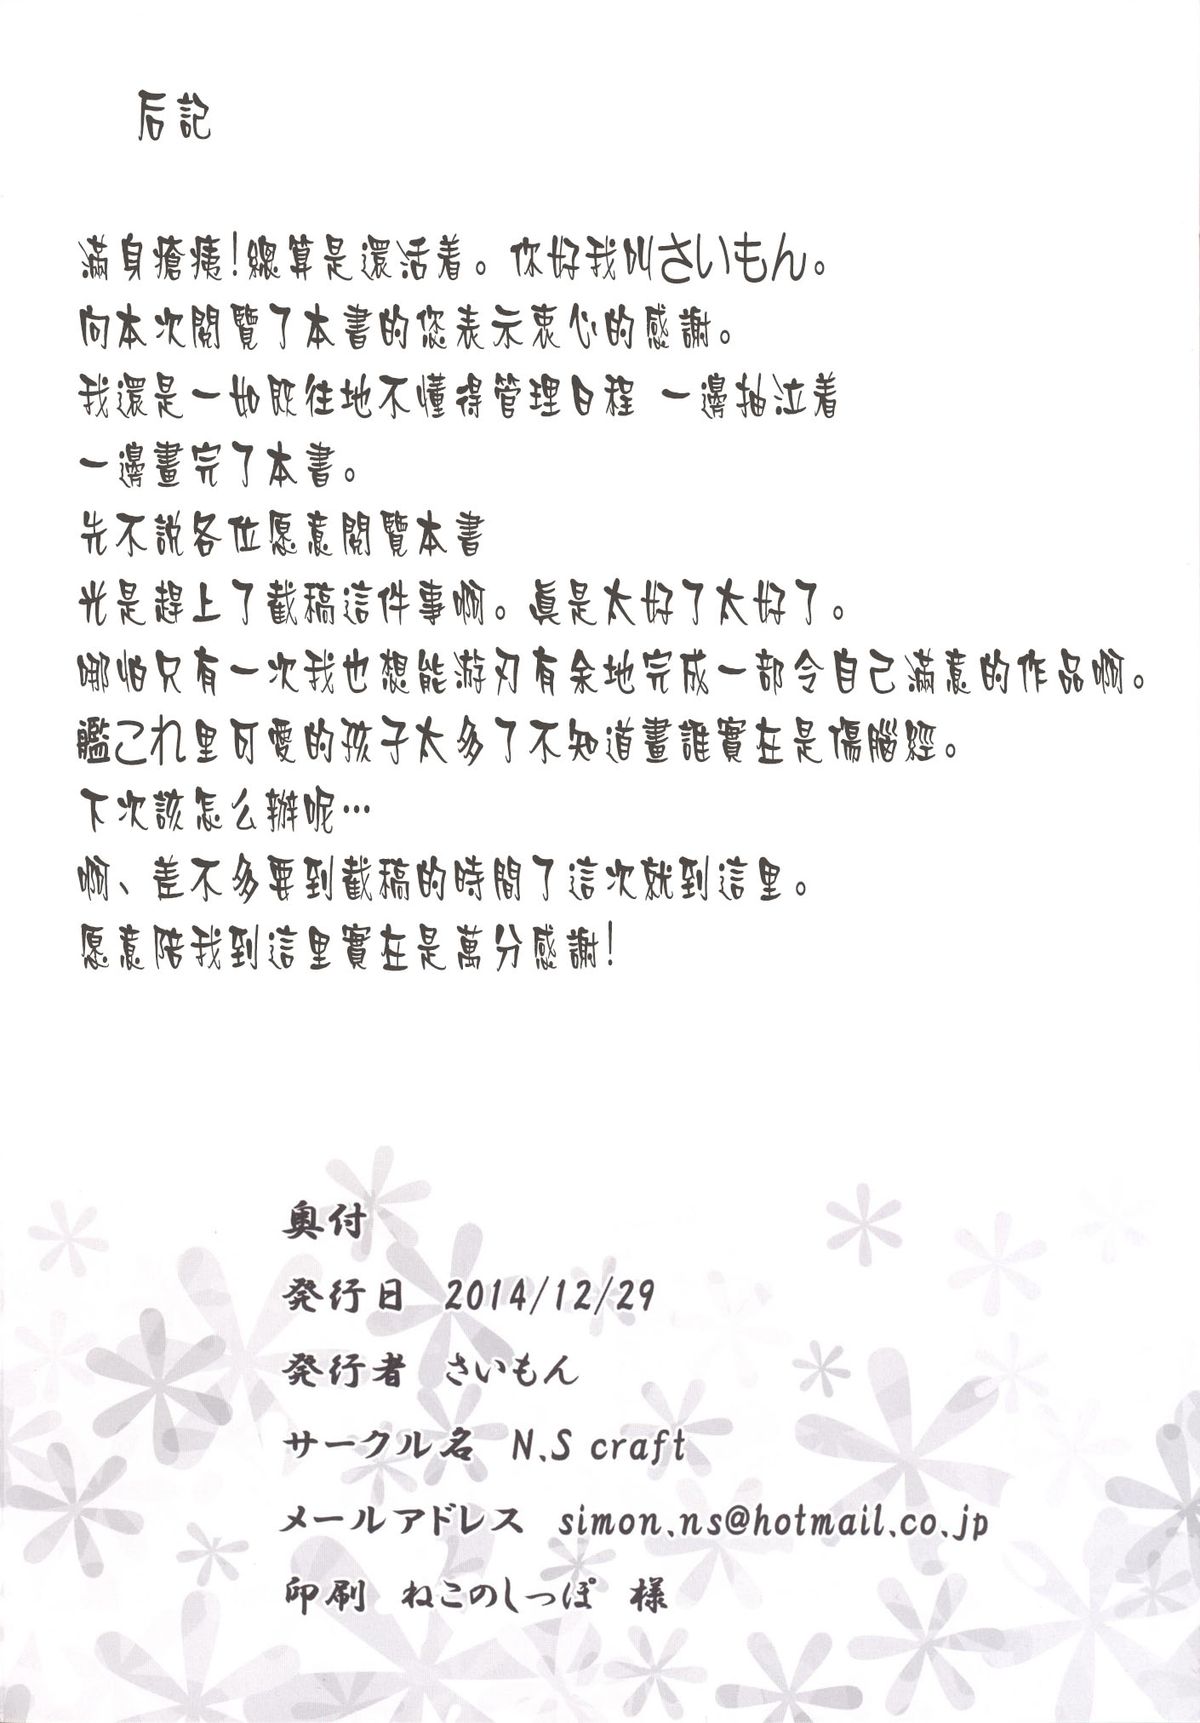 后記
滿身瘡痍!總算是還活着。你好我叫さいもん。
向本次閱覽了本書的您表示衷心的感謝。
我還是一如既往地不懂得管理日程 一邊抽泣着
一邊畫完了本書。
先不說各位愿意閱覽本書
光是趕上了截稿這件事啊。真是太好了太好了。
哪怕只有一次我也想能游刃有余地完成一部令自己滿意的作品啊。
艦これ里可愛的孩子太多了不知道畫誰實在是傷腦經。
下次該怎么辦呢…
啊、差不多要到截稿的時間了這次就到這里。
愿意陪我到這里實在是萬分感謝!
奥付
発行日 2014/12/29
発行者 さいもん
サークル名 N.S craft
メールアドレス simon.ns@hotmail.co.jp
印刷 ねこのしっぽ 様